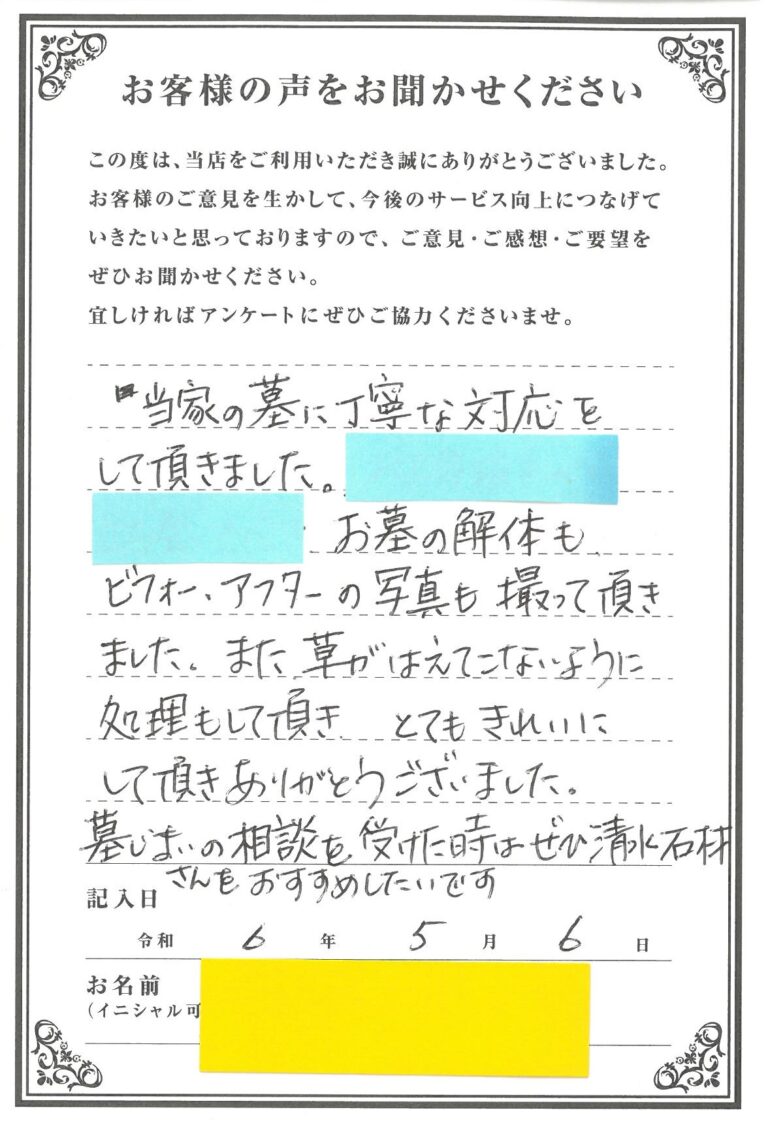 お客様の声をお聞かせください
この度は、当店をご利用いただき誠にありがとうございました。
お客様のご意見を生かして、今後のサービス向上につなげて
いきたいと思っておりますので、ご意見・ご感想・ご要望を
ぜひお聞かせください。
宜しければアンケートにぜひご協力くださいませ。
当家の墓に丁寧な対応を
して頂きました。
お墓の解体も
ビフォー、アフターの写真も撮って頂き
ました。また草がはえてこないように
処理もして頂き とてもきれいに
して頂きありがとうございました。
墓じまいの相談を受けた時はぜひ清水石材
さんをおすすめしたいです
記入日
令和 6 年 5 月 6 日
お名前
(イニシャル可